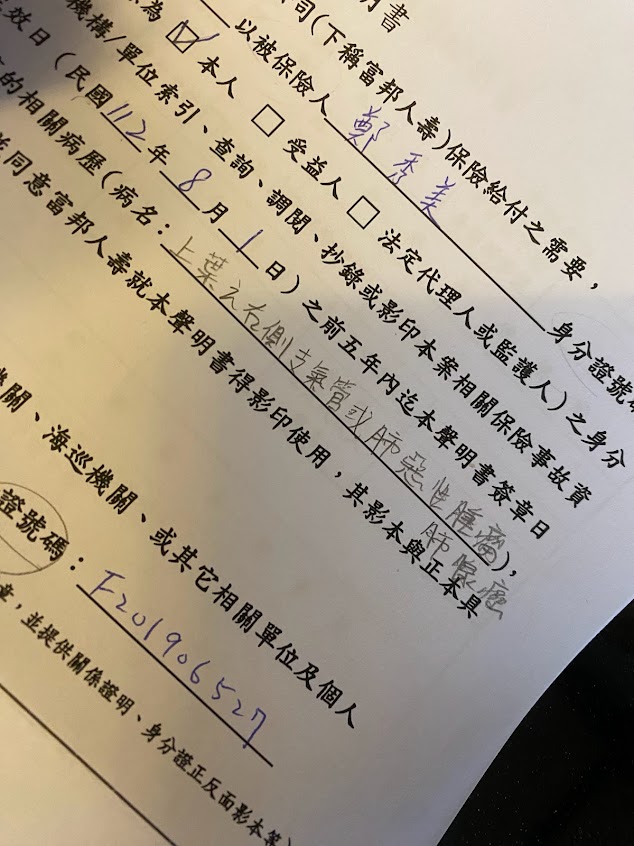 明書
公司(下稱富邦人壽)保險給付之需要，
以被保險人 鄭秀美 身分證號碼
為 ☑ 本人 □ 受益人 □ 法定代理人或監護人)之身分
機構/單位索引、查詢、調閱、抄錄或影印本案相關保險事故資
效日(民國112年8月1日)之前五年內迄本聲明書簽章日
的相關病歷(病名：上葉之右側支氣管或肺惡性腫瘤)，
肺腺癌
同意富邦人壽就本聲明書得影印使用，其影本與正本具
機關、海巡機關、或其它相關單位及個人
證號碼：F201906527
章，並提供關係證明、身分證正反面影本等)